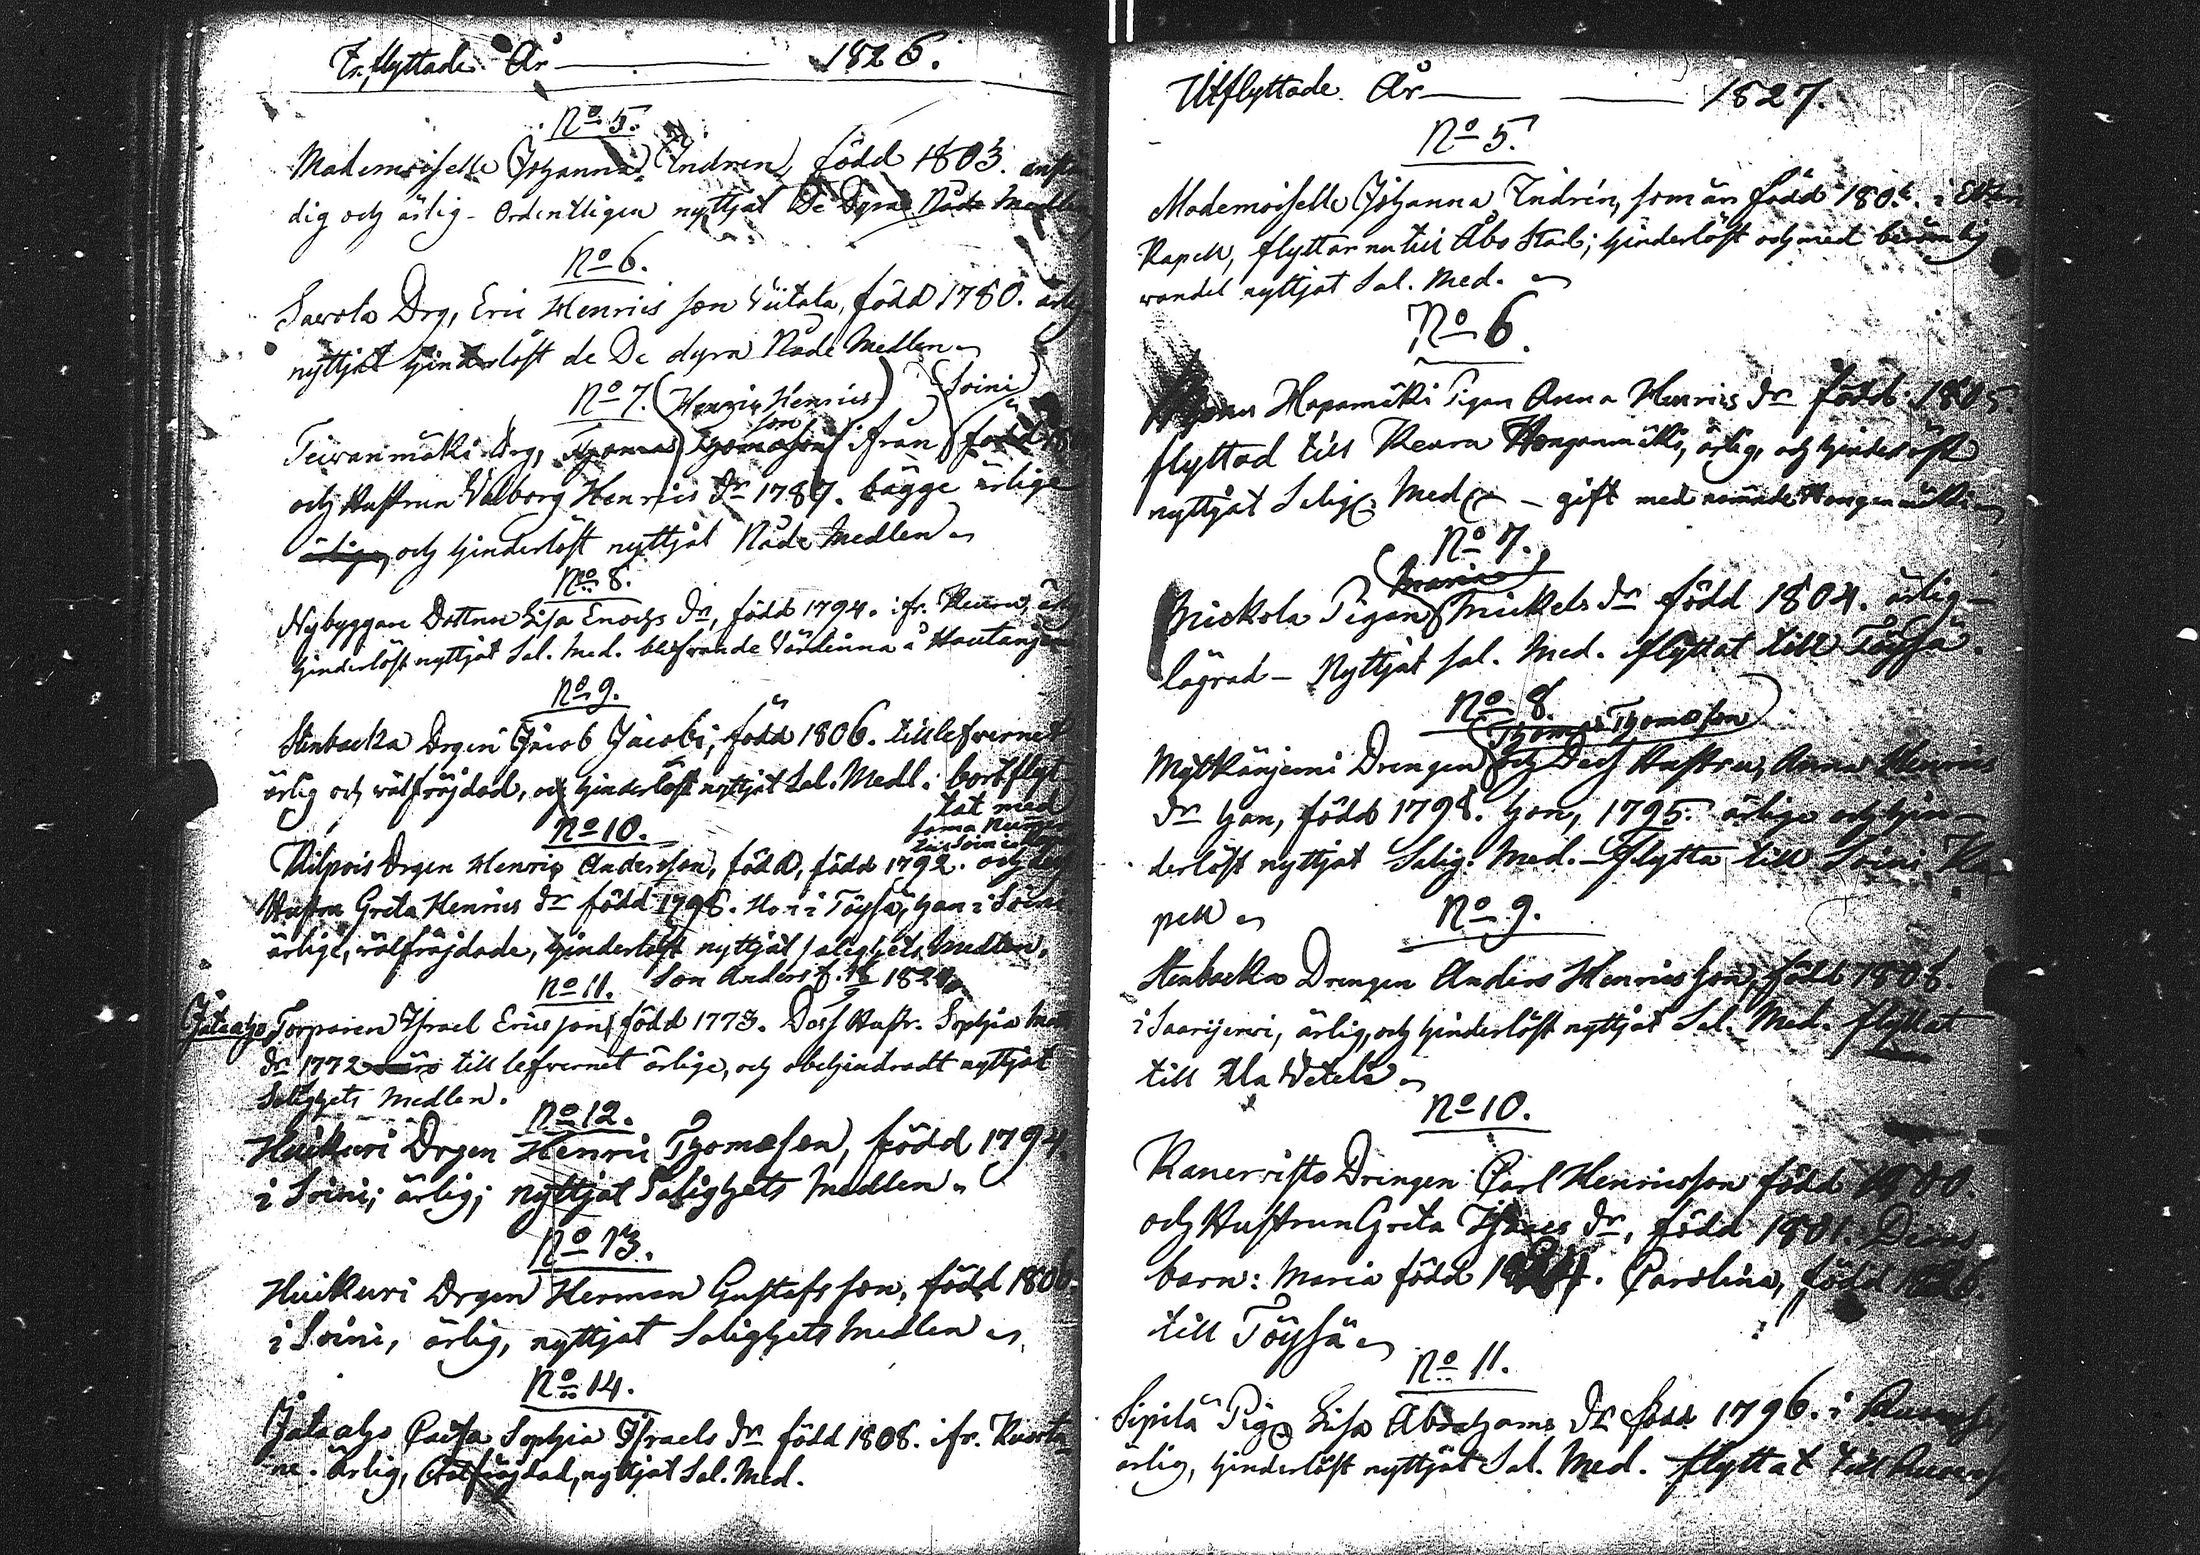 In flyttade År 1826.
No 5.
Mademoiselle Johanna Indren, född 1803.
dig och ärlig - Ordentligen nyttjat De Dyra Nåde Medlen
No 6.
Savola Drg, Eric Henrics son Viitala, född 1780.
nyttjat hinderlöst de De dyra Nåde Medlen
No 7. (Henric Henrics son) (Soini)
Teivanmäki Drg, Thomas Thomasson ifrån född
och Hustrun Valborg Henrics dr 1787. bägge ärlige
ärlige, och hinderlöst nyttjat Nåde Medlen
No 8.
Nybyggare Dottren Lisa Enochs dr, född 1794. ifr.
hinderlöst nyttjat Sal. Med. blefvande Värdinna å
No 9.
Stenbacka Drgen Jacob Jacobs, född 1806. till lefvernet
ärlig och välfräjdad, och hinderlöst nyttjat Sal. Medl. bortflyt
tat med
samma
No 10.
Drgen Henric Andersson, född, född 1792. och
Hustru Greta Henrics dr född 1798. Hon i Töysä, han i Soini
ärlige, välfräjdade, hinderlöst nyttjat salighets Medlen.
Son Anders f. 1824
No 11.
Jätaaho Torparen Israel Ericsson, född 1773. Dess Hustr. Sophia
dr 1772 till lefvernet ärlige, och obehindradt nyttjat
Salighets Medlen.
No 12.
Huikuri Drgen Henric Thomason, född 1794
i Soini; ärlig; nyttjat Salighets Medlen
No 13.
Huikuri Drgen Herman Gustafsson, född 1806.
i Soini, ärlig, nyttjat Salighets Medlen
No 14.
Jätaaho Caisa Sophia Israels dr född 1808. ifr. Kuorta
ne. Ärlig, välfräjdad, nyttjat Sal. Med.
Utflyttade År 1827.
No 5.
Mademoiselle Johanna Indrén, som är född i
Kapell, flyttar nu till Åbo Stad; hinderlöst och med berömlig
wandel nyttjat Sal. Med.
No 6.
Hapamäki Pigan Anna Henrics dr född 1805.
flyttad till Keura Honganmäki, ärlig, och hinderlöst
nyttjat Salig. Med. - gift med Hongenmäki
No 7.
(Maria)
Mickola Pigan Mickels dr född 1804. ärlig -
lägrad - Nyttjat sal. Med. flyttat till Töysä.
No 8.
Thomas Thomasson
Mytkänjemi Drengen och Dess Hustru, Anna Henrics
dr han, född 1798. hon, 1795. ärlige och hin-
derlöst nyttjat Salig. Med. - Flytta till Soini Ka
pell
No 9.
Stenbacka Drengen Anders Henricsson, född 1808.
i Saarijervi, ärlig, och hinderlöst nyttjat Sal. Med. flyttat
till Ala Wetels
No 10.
Kanervisto Drengen Carl Henricsson född 1800.
och Hustrun Greta Israels dr, född 1801. Deras
barn: Maria född 1824. Carolina, född 1826.
till Töysä
No 11.
Sipilä Pig. Lisa Abrahams dr född 1796. i
ärlig, hinderlöst nyttjat Sal. Med. flyttat till